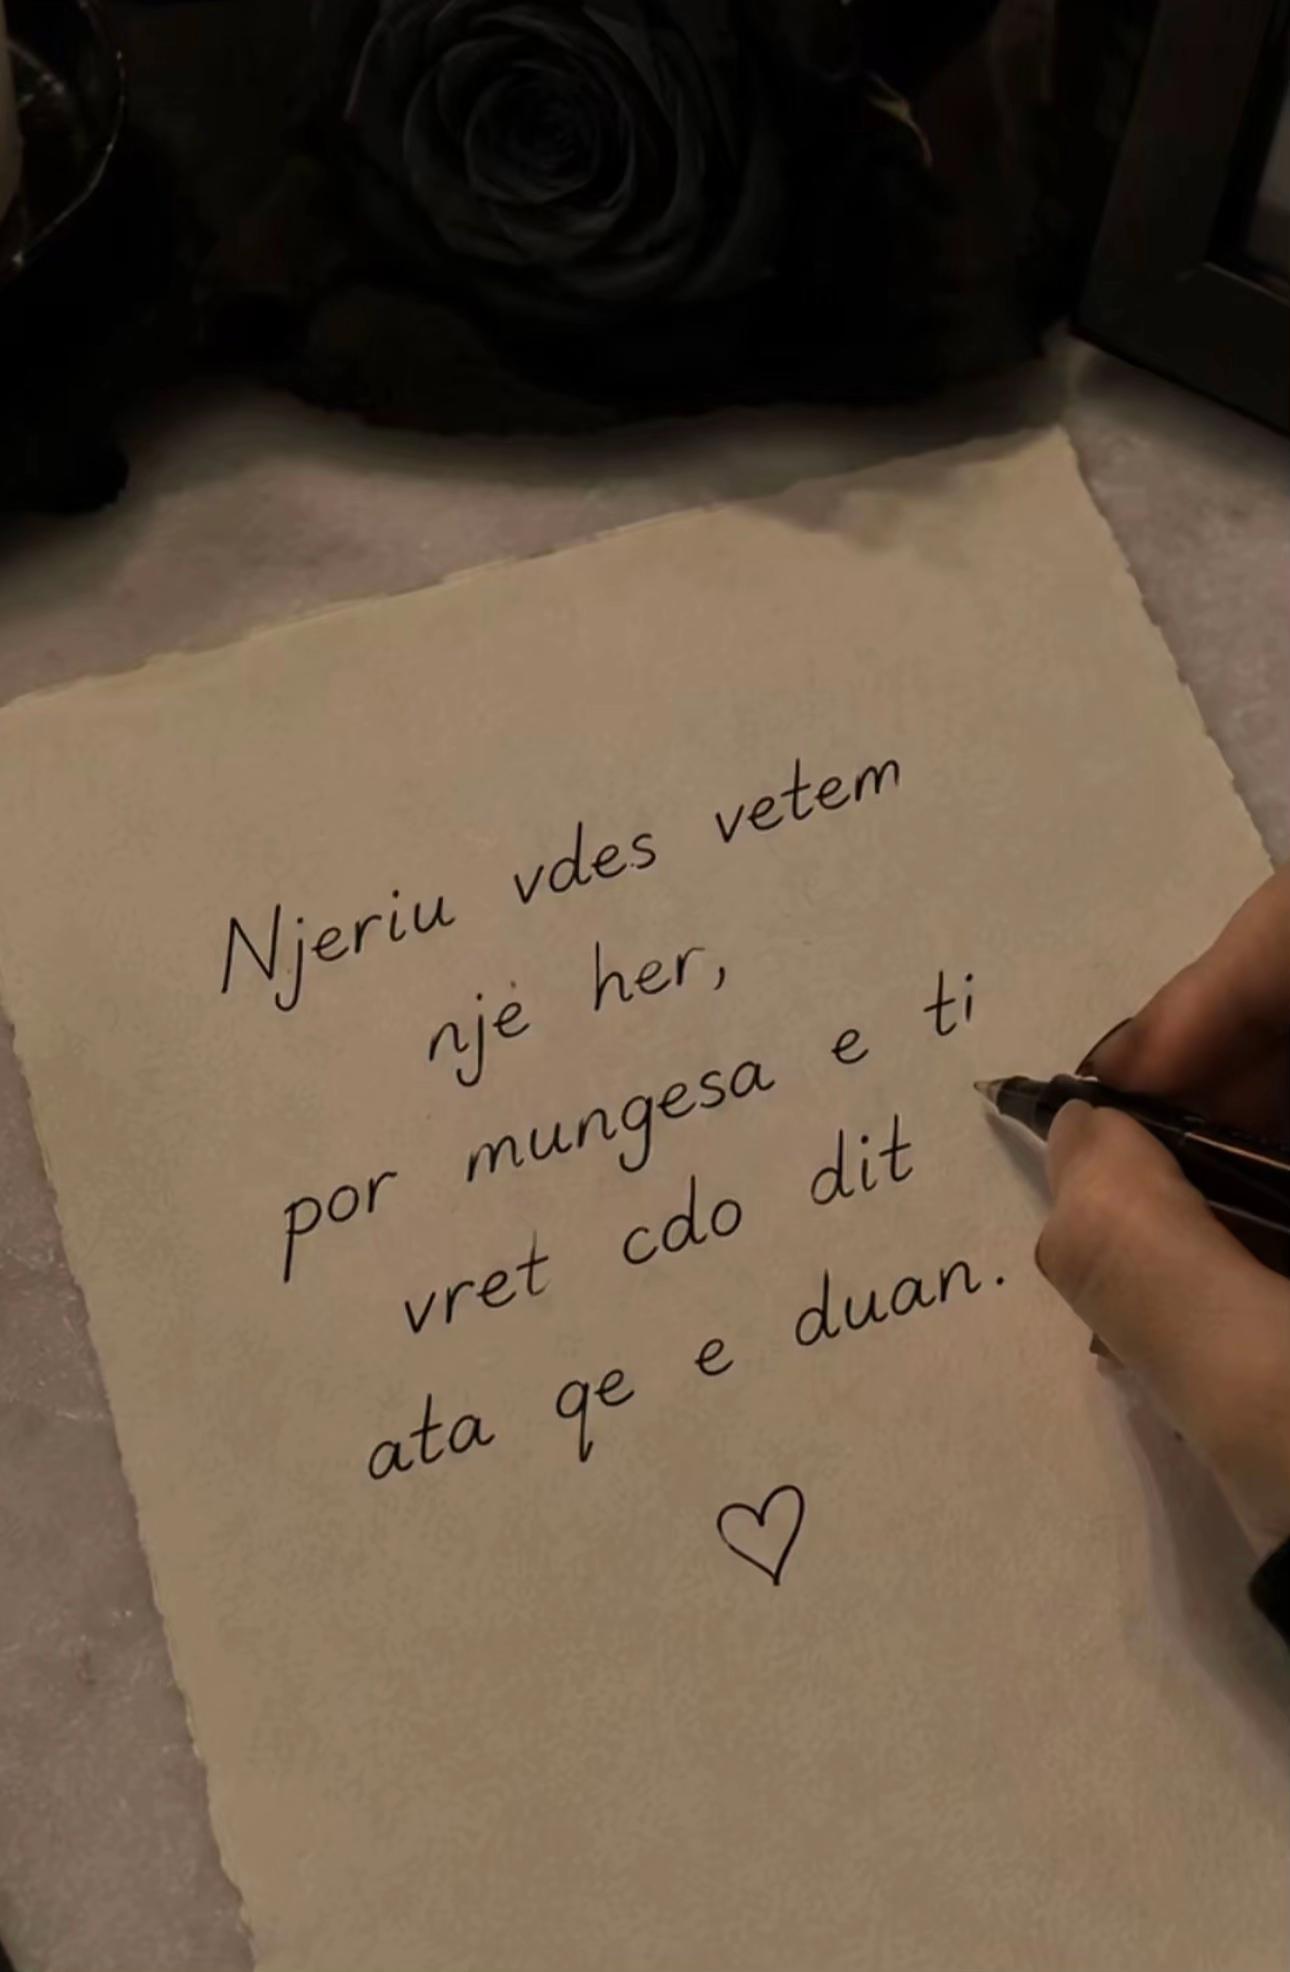 Njeriu vdes vetem
një her,
por mungesa e ti
vret cdo dit
ata qe e duan.